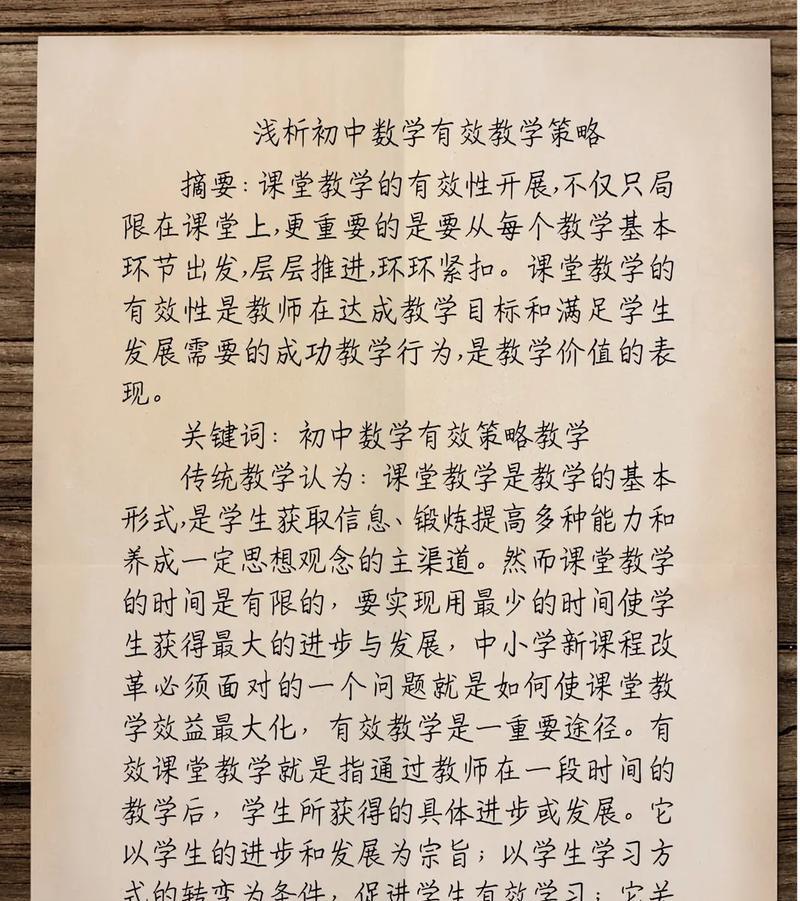 浅析初中数学有效教学策略
摘要:课堂教学的有效性开展,不仅只局
限在课堂上,更重要的是要从每个教学基本
环节出发,层层推进,环环紧扣。课堂教学的
有效性是教师在达成教学目标和满足学生
发展需要的成功教学行为,是教学价值的表
现。
关键词: 初中数学有效策略教学
传统教学认为: 课堂教学是教学的基本
形式,是学生获取信息、锻炼提高多种能力和
养成一定思想观念的主渠道。然而课堂教学
的时间是有限的, 要实现用最少的时间使学
生获得最大的进步与发展, 中小学新课程改
革必须面对的一个问题就是如何使课堂教
学效益最大化, 有效教学是一重要途径。有
效课堂教学就是指通过教师在一段时间的
教学后, 学生所获得的具体进步或发展。它
以学生的进步和发展为宗旨;以学生学习方
式的转变为条件, 促进学生有效学习;它关